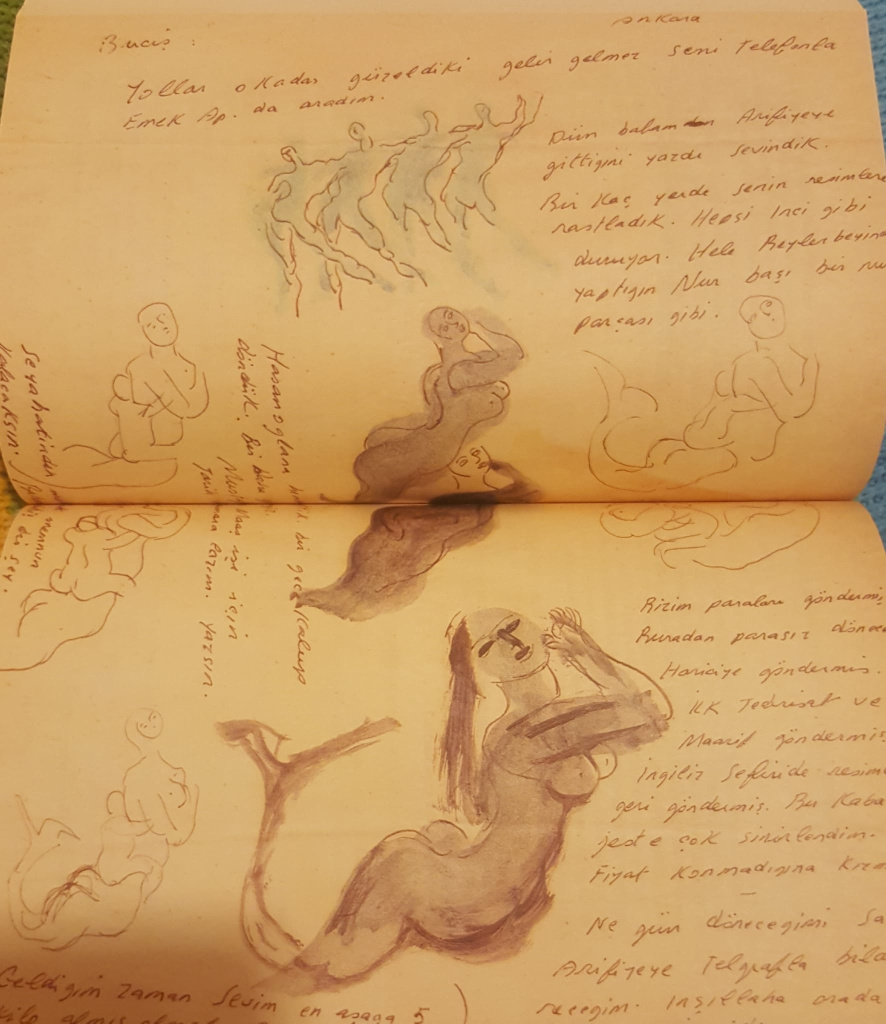 ankara
Buciş :
Yollar o kadar güzeldiki gelir gelmez seni Telefonla
Emek Ap. da aradım.
Dün babamdan Arifiyeye
gittigini yazdı sevindik.
Bir kaç yerde senin resimlere
rastladık. Hepsi inci gibi
duruyor. Hele Beylerbeyine
yaptıgın Nur başı bir nur
parçası gibi.
Seyahatinden memnun
kalacaksın. bir şey.
Hasanoglana bir gece kalıp
döndük. Bir
için
lazım. yazsın.
Bizim paraları göndermiş
Buradan parasız dönece
Hariciye göndermis.
ilk Tedrisat ve
Maarif göndermiş
ingiliz Sefiride resim
geri göndermiş. Bu Kaba
jeste çok sinirlendim.
Fiyat Konmadıgına
Ne gün dönecegimi sa
Arifiyeye Telgrafla bild
recegim. inşallaha orada
Geldigim zaman Sevim en aşaga 5
kilo almış